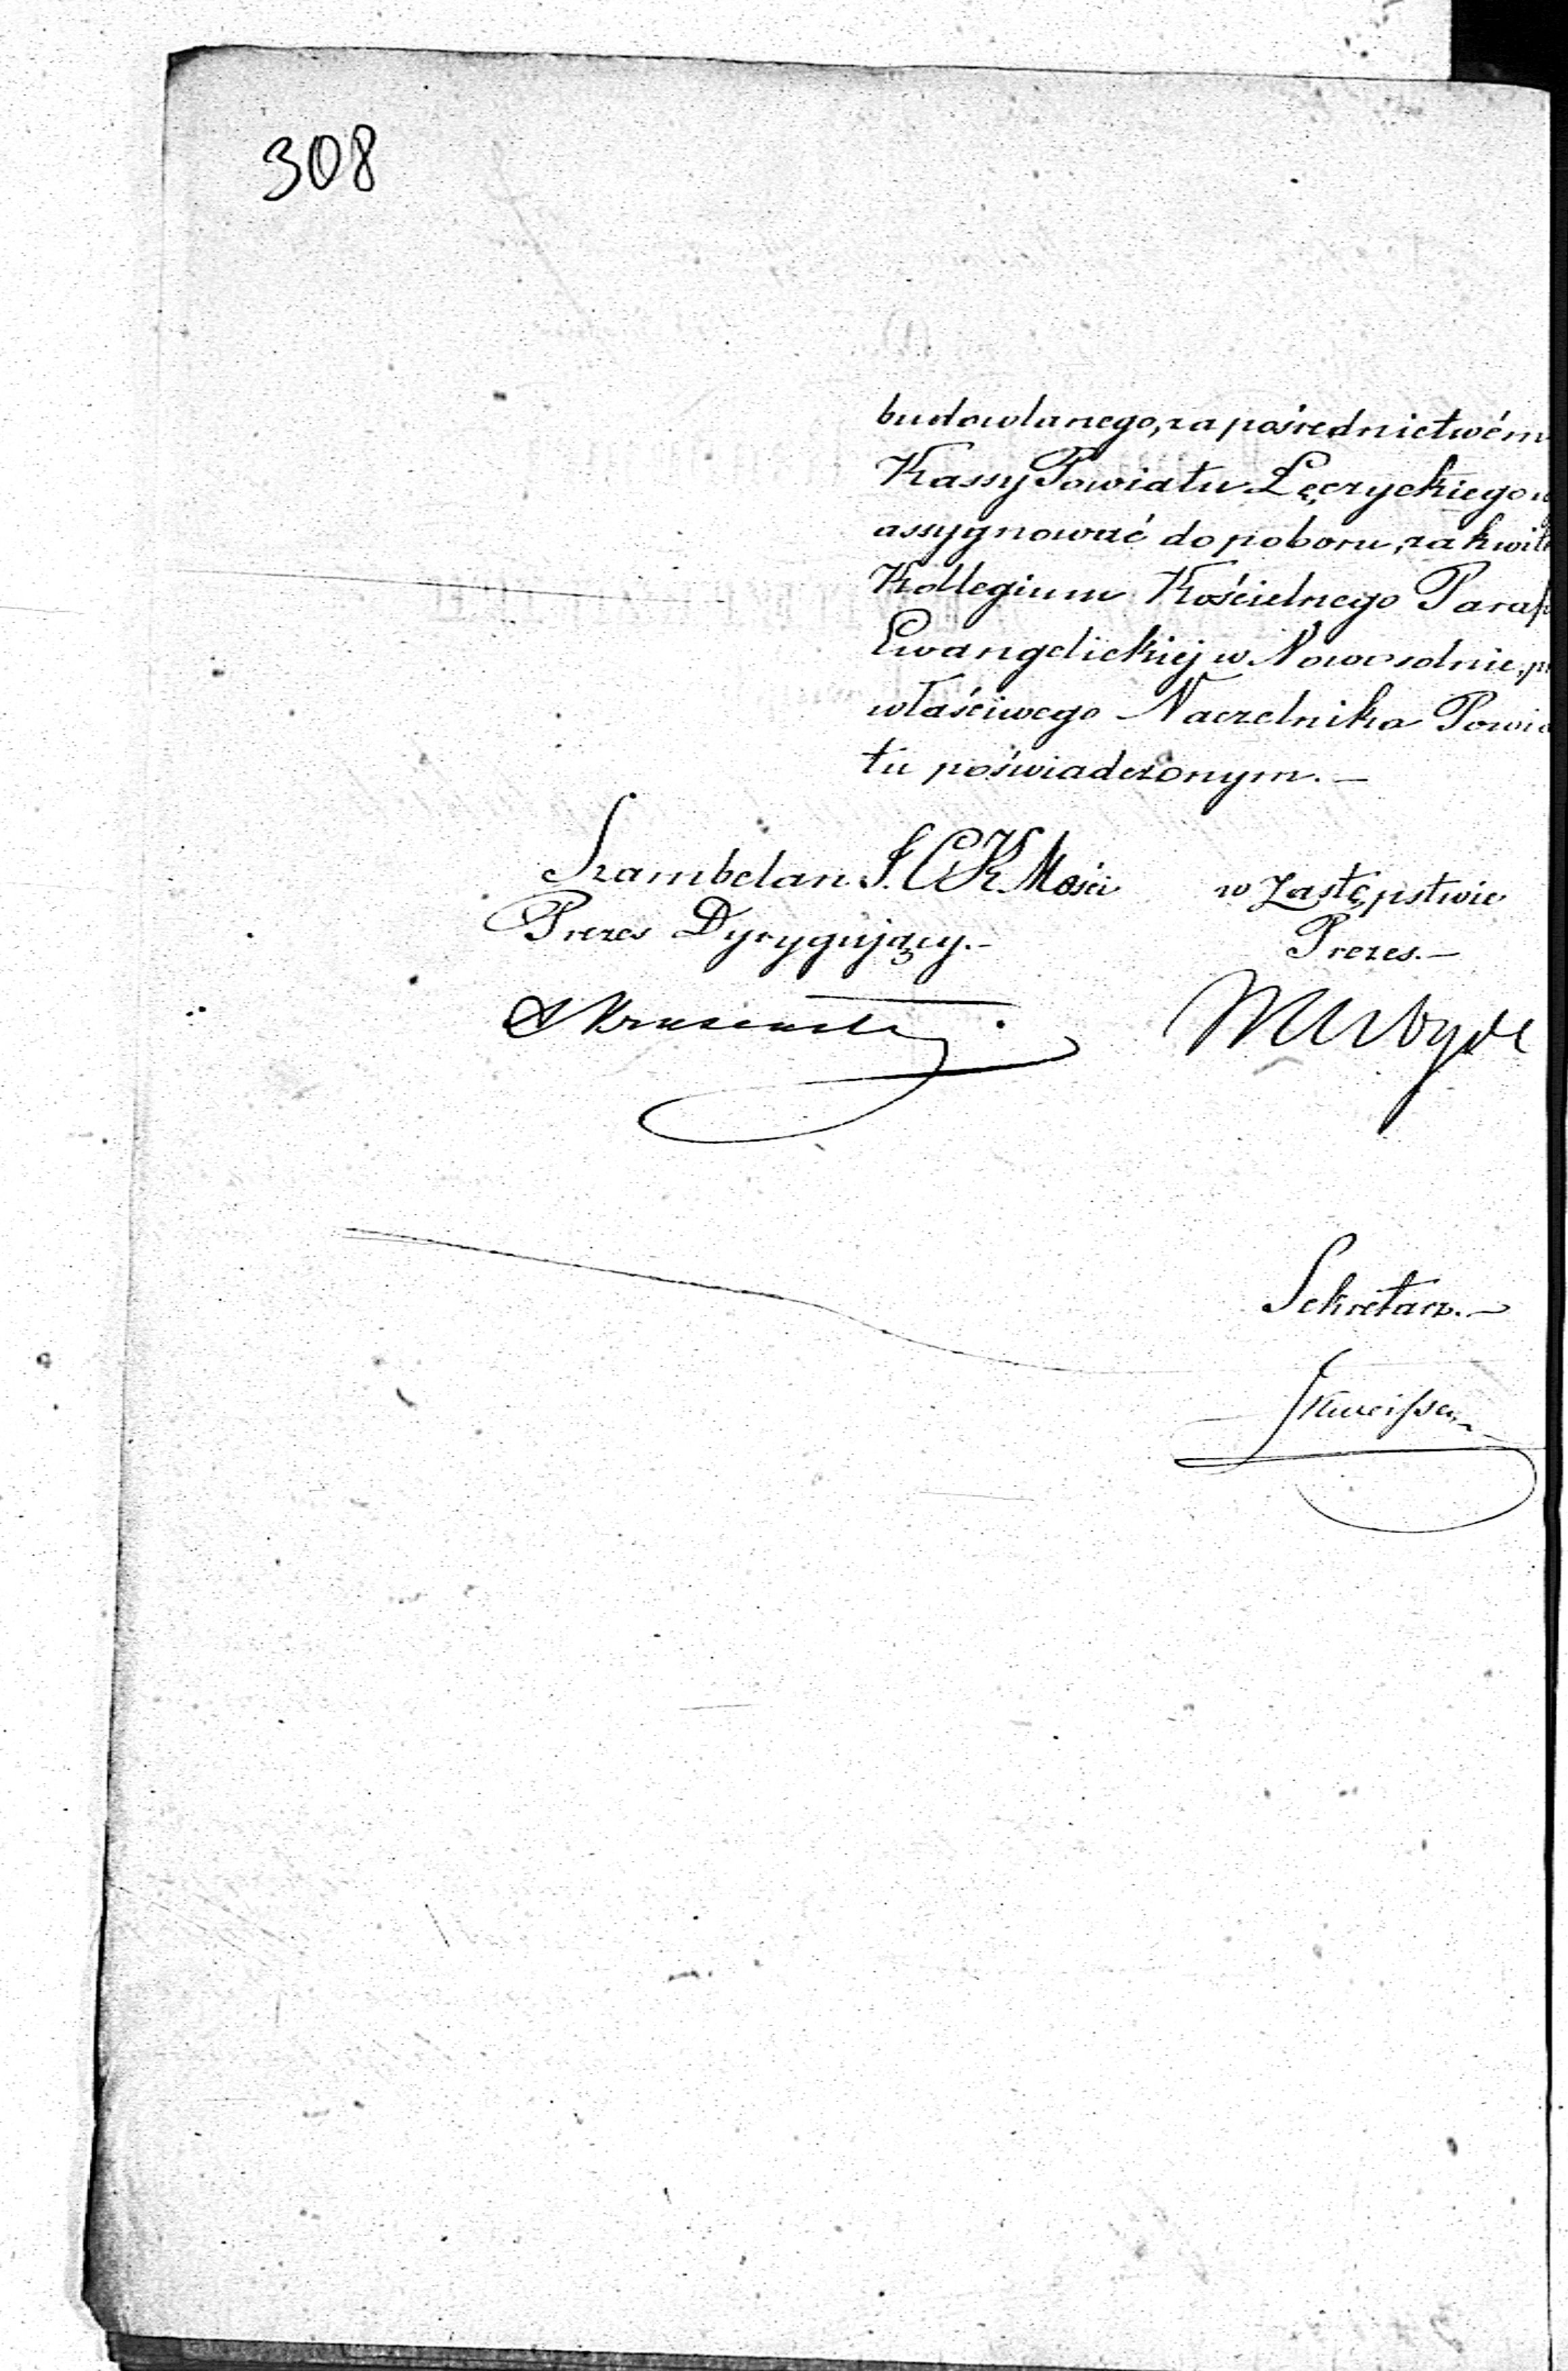 308
budowlanego, za pośrednictwém
Kassy Powiatu Łęczyckiego
assygnować do poboru, za kwit
Kollegium Kościelnego Paraf
Ewangelickiéj w Noworodnie,
właściwego Naczelnika Powia
tu poświadczonym. —
Szambelan J. C. K. Mości
w Zastępstwie
Prezes Dyrygujący. —
Prezes. —
Sekretarz. —